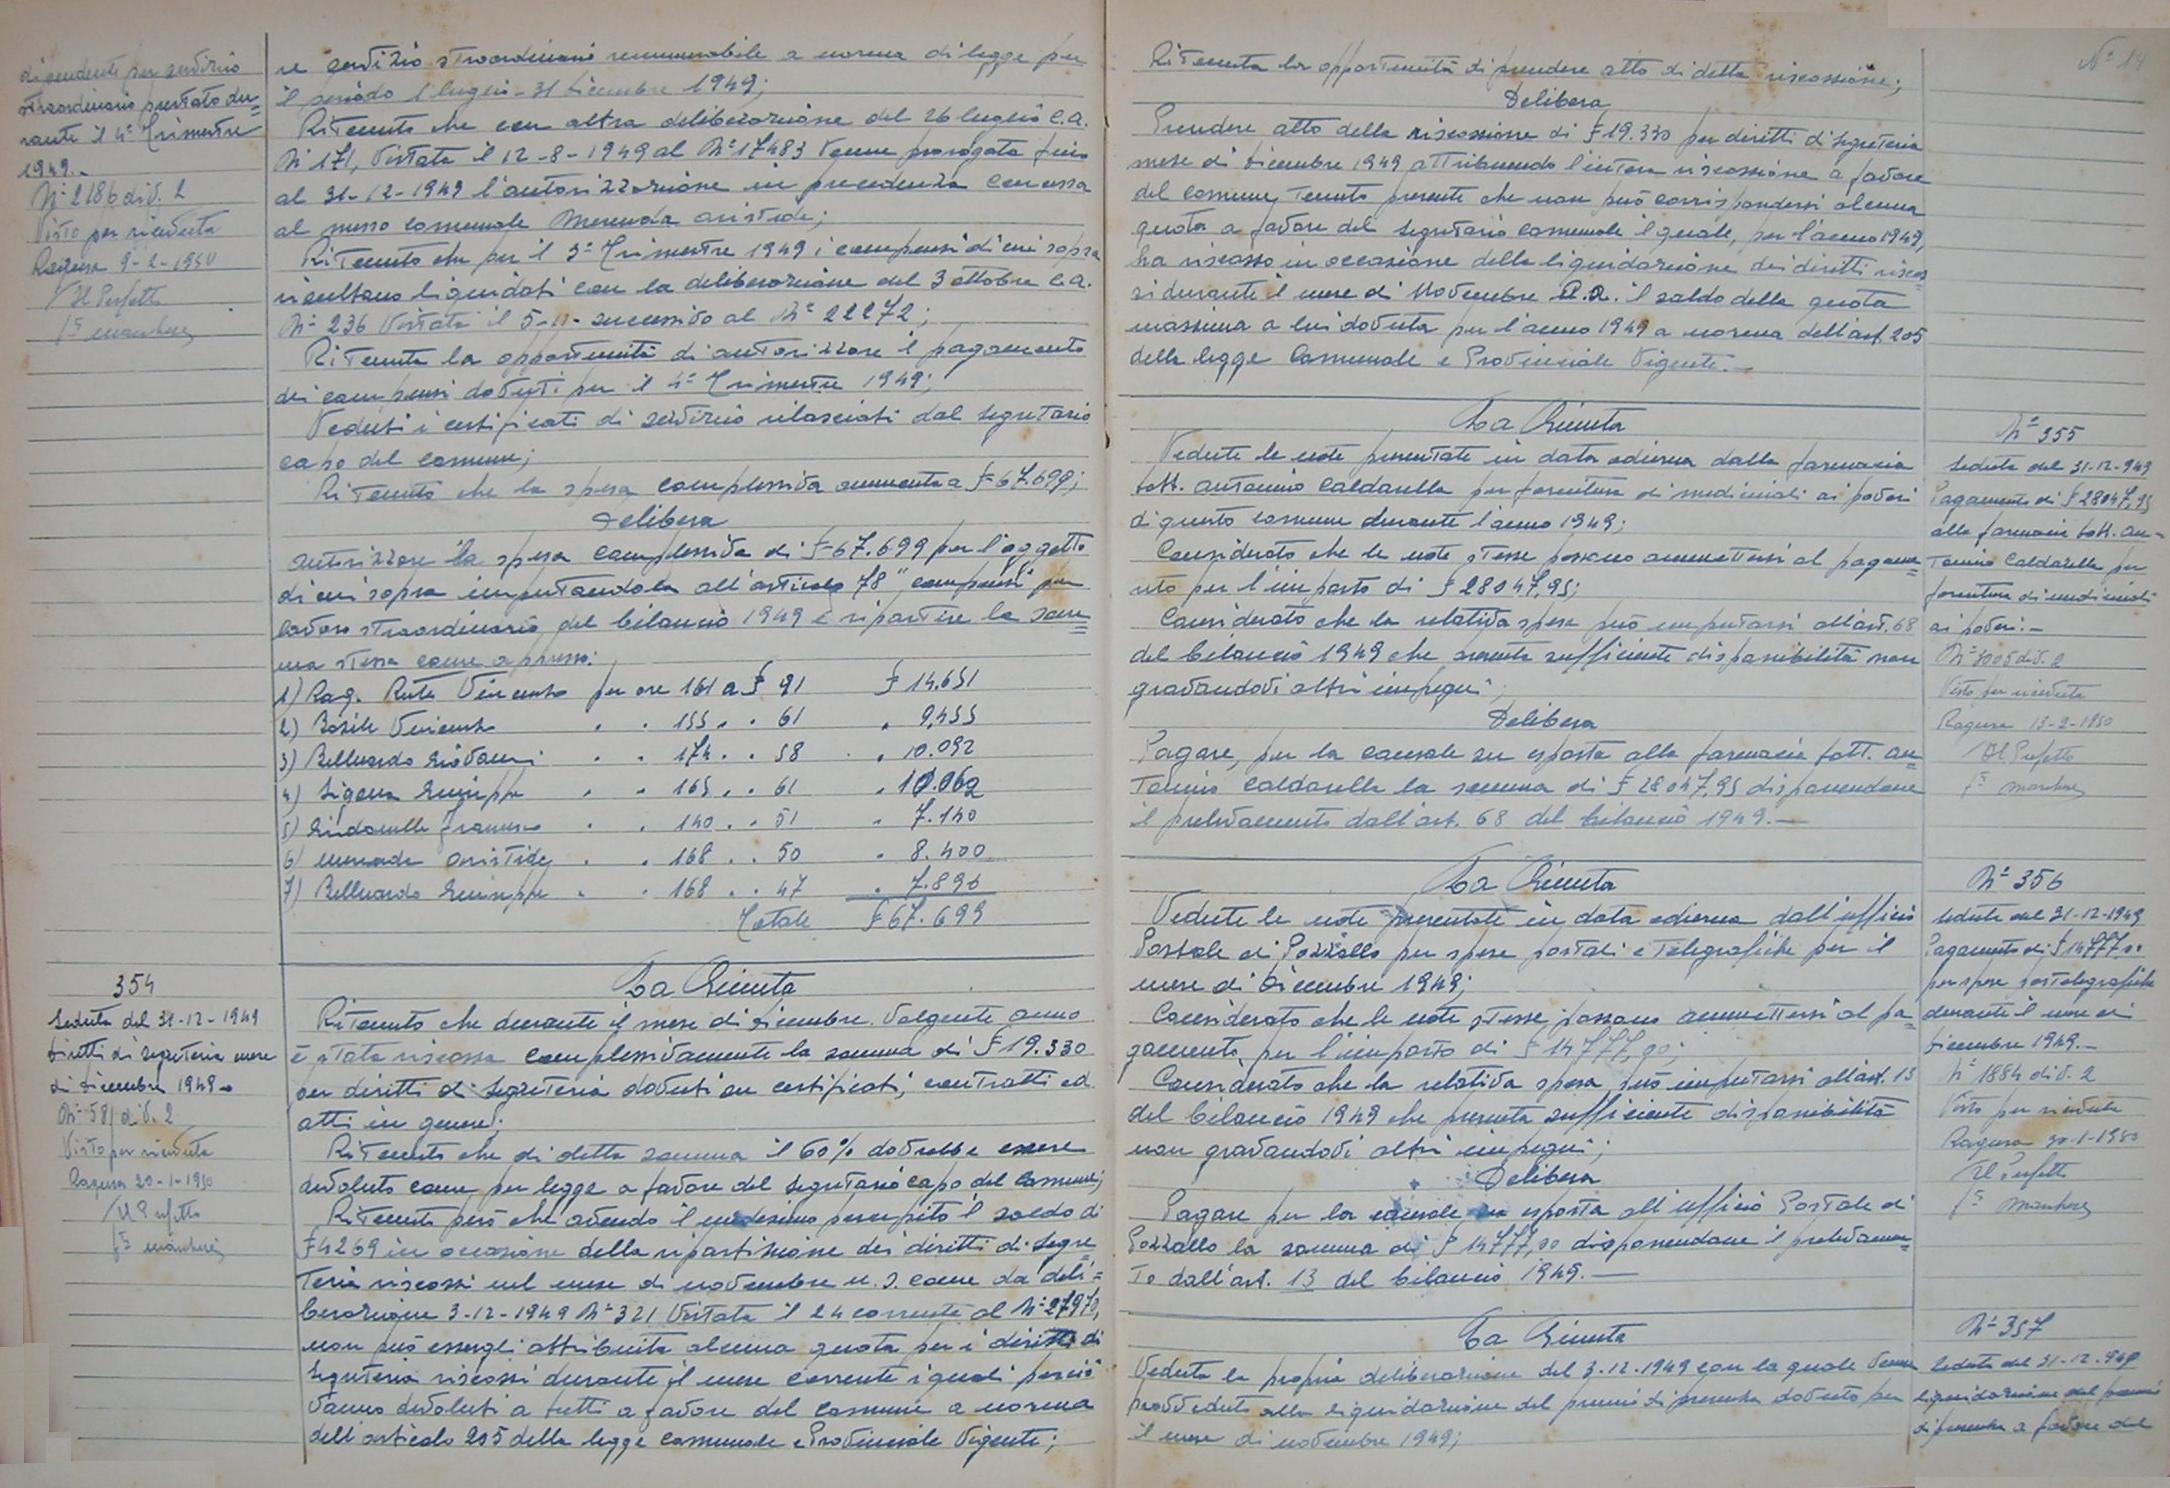 dipendenti per servizio
straordinario prestato du=
rante il 4° Trimestre
1949.-
N° 2186 div. 2
Visto per ricevuta
Ragusa 9-2-1950
Il Prefetto
re servizio straordinario remunerabile a norma di legge per
il periodo 1 luglio - 31 dicembre 1949;
Ritenuto che con altra deliberazione del 26 luglio c.a.
N° 171, vistata il 12-8-1949 al N° 17483 venne prorogata fino
al 31-12-1949 l'autorizzazione in precedenza concessa
al messo comunale Merenda Aristide;
Ritenuto che per il 3° Trimestre 1949 i compensi di cui sopra
risultano liquidati con la deliberazione del 3 ottobre c.a.
N° 236 vistata il 5-11- successivo al N° 22272;
Ritenuta la opportunità di autorizzare il pagamento
dei compensi dovuti per il 4° Trimestre 1949;
Veduti i certificati di servizio rilasciati dal segretario
capo del comune;
Ritenuto che la spesa complessiva ammonta a £ 67.699;
Delibera
autorizzare la spesa complessiva di £ 67.699 per l'oggetto
di cui sopra imputandola all'articolo 78 "compensi per
lavoro straordinario" del bilancio 1949 e ripartire la som=
ma stessa come appresso:
1) Rag. Ruta Vincenzo per ore 161 a £ 91 £ 14.651
2) Basile Vincenzo " " 155 " " 61 " 9.455
3) Belluardo Giovanni " " 174 " " 58 " 10.092
4) Sigona Giuseppe " " 165 " " 61 " 10.062
5) Giudanella Francesco " " 140 " " 51 " 7.140
6) Merenda Aristide " " 168 " " 50 " 8.400
7) Belluardo Giuseppe " " 168 " " 47 " 7.896
Totale £ 67.699
354
Seduta del 31-12-1949
Diritti di segreteria mese
di dicembre 1949.-
N° 581 div. 2
Visto per ricevuta
Ragusa 20-1-1950
Il Prefetto
La Giunta
Ritenuto che durante il mese di dicembre volgente anno
è stata riscossa complessivamente la somma di £ 19.330
per diritti di segreteria dovuti su certificati, contratti ed
atti in genere;
Ritenuto che di detta somma il 60% dovrebbe essere
devoluto come per legge a favore del segretario capo del comune;
Ritenuto però che avendo il medesimo percepito il saldo di
£ 4269 in occasione della ripartizione dei diritti di segre=
teria riscossi nel mese di novembre u.s. come da deli=
berazione 3-12-1949 N° 321 vistata il 24 corrente al N° 27970,
non può essergli attribuita alcuna quota per i diritti di
segreteria riscossi durante il mese corrente i quali perciò
vanno devoluti a tutti a favore del comune a norma
dell'articolo 205 della legge comunale e Provinciale vigente;
N° 14
Ritenuta la opportunità di prendere atto di detta riscossione;
Delibera
Prendere atto della riscossione di £ 19.330 per diritti di segreteria
mese di dicembre 1949 attribuendo l'intera riscossione a favore
del comune, tenuto presente che non può corrispondersi alcuna
quota a favore del segretario comunale il quale, per l'anno 1949,
ha riscosso in occasione della liquidazione dei diritti riscos=
si durante il mese di Novembre u.s. il saldo della quota
massima a lui dovuta per l'anno 1949 a norma dell'art. 205
della legge Comunale e Provinciale vigente.-
La Giunta
Vedute le note presentate in data odierna dalla farmacia
dott. Antonino Caldarella per fornitura di medicinali ai poveri
di questo comune durante l'anno 1949;
Considerato che le note stesse possono ammettersi al pagame=
nto per l'importo di £ 28047,95;
Considerato che la relativa spesa può imputarsi all'art. 68
del bilancio 1949 che presenta sufficiente disponibilità non
gravandovi altri impegni;
Delibera
Pagare, per la causale su esposta alla farmacia Dott. An=
tonino Caldarella la somma di £ 28047,95 disponendone
il prelevamento dall'art. 68 del bilancio 1949.-
N° 355
Seduta del 31-12-949
Pagamento di £ 28047,95
alla farmacia Dott. An=
tonino Caldarella per
fornitura di medicinali
ai poveri.-
N° 3005 div. 2
Visto per ricevuta
Ragusa 13-2-1950
Il Prefetto
La Giunta
Vedute le note presentate in data odierna dall'ufficio
Postale di Pozzallo per spese postali e telegrafiche per il
mese di Dicembre 1949;
Considerato che le note stesse possono ammettersi al pa=
gamento, per l'importo di £ 14777,90;
Considerato che la relativa spesa può imputarsi all'art. 13
del bilancio 1949 che presenta sufficiente disponibilità
non gravandovi altri impegni;
Delibera
Pagare per la causale su esposta all'ufficio Postale di
Pozzallo la somma di £ 14777,90 disponendone il prelevamen=
to dall'art. 13 del bilancio 1949.-
N° 356
Seduta del 31-12-1949
Pagamento di £ 14777
per spese postelegrafiche
durante il mese di
dicembre 1949.-
N° 1884 div. 2
Visto per ricevuta
Ragusa 30-1-1950
Il Prefetto
La Giunta
Veduta la propria deliberazione del 3-12-1949 con la quale venne
provveduto alla liquidazione del premio di presenza dovuto per
il mese di novembre 1949;
N° 357
Seduta del 31-12-949
liquidazione del premio
di presenza a favore del